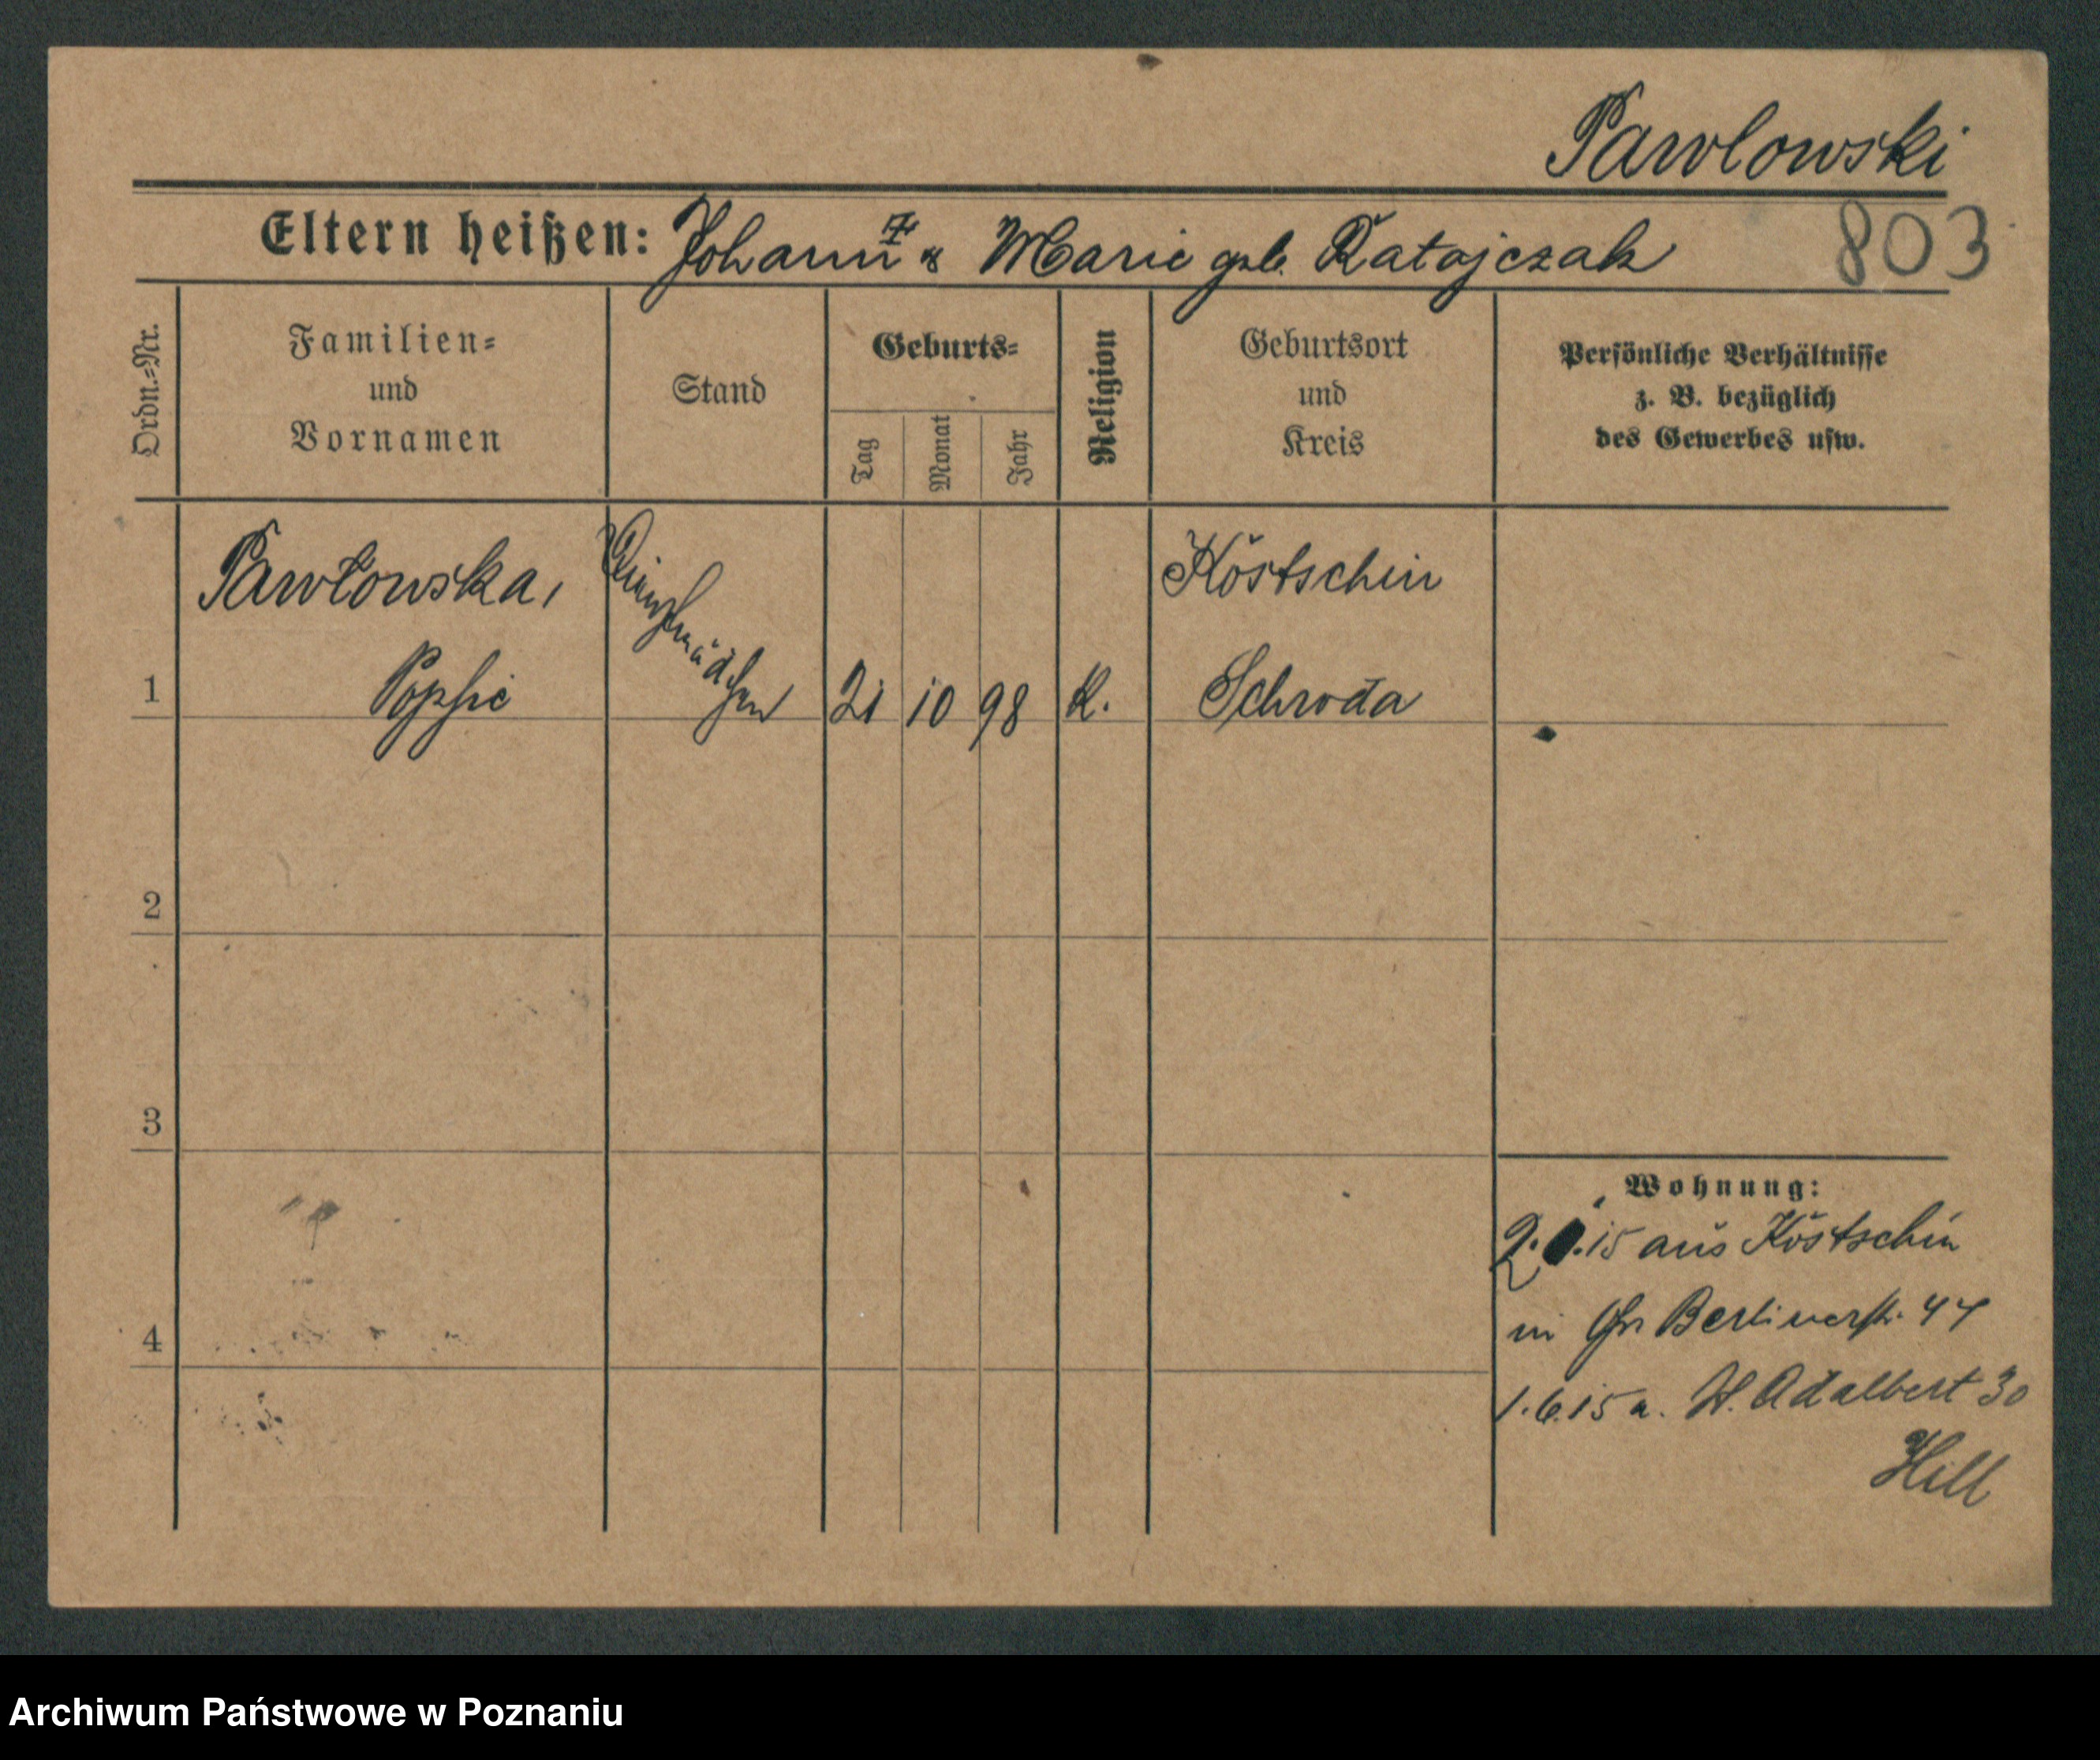 Pawlowski
Eltern heißen: Johann & Marie geb. Ratajczak 803
Ordn.-Nr.
Familien-
und
Vornamen
Stand
Geburts-
Tag
Monat
Jahr
Religion
Geburtsort
und
Kreis
Persönliche Verhältnisse
z. B. bezüglich
des Gewerbes usw.
Pawlowska,
Sophie
Dienstmädchen
1
21 10 98 K.
Kostschin
Schroda
2
3
4
Wohnung:
15 aus Kostschin
in Gr Berlinerstr. 44
1.6.15 a. St. Adalbert 30
Hill
Archiwum Państwowe w Poznaniu